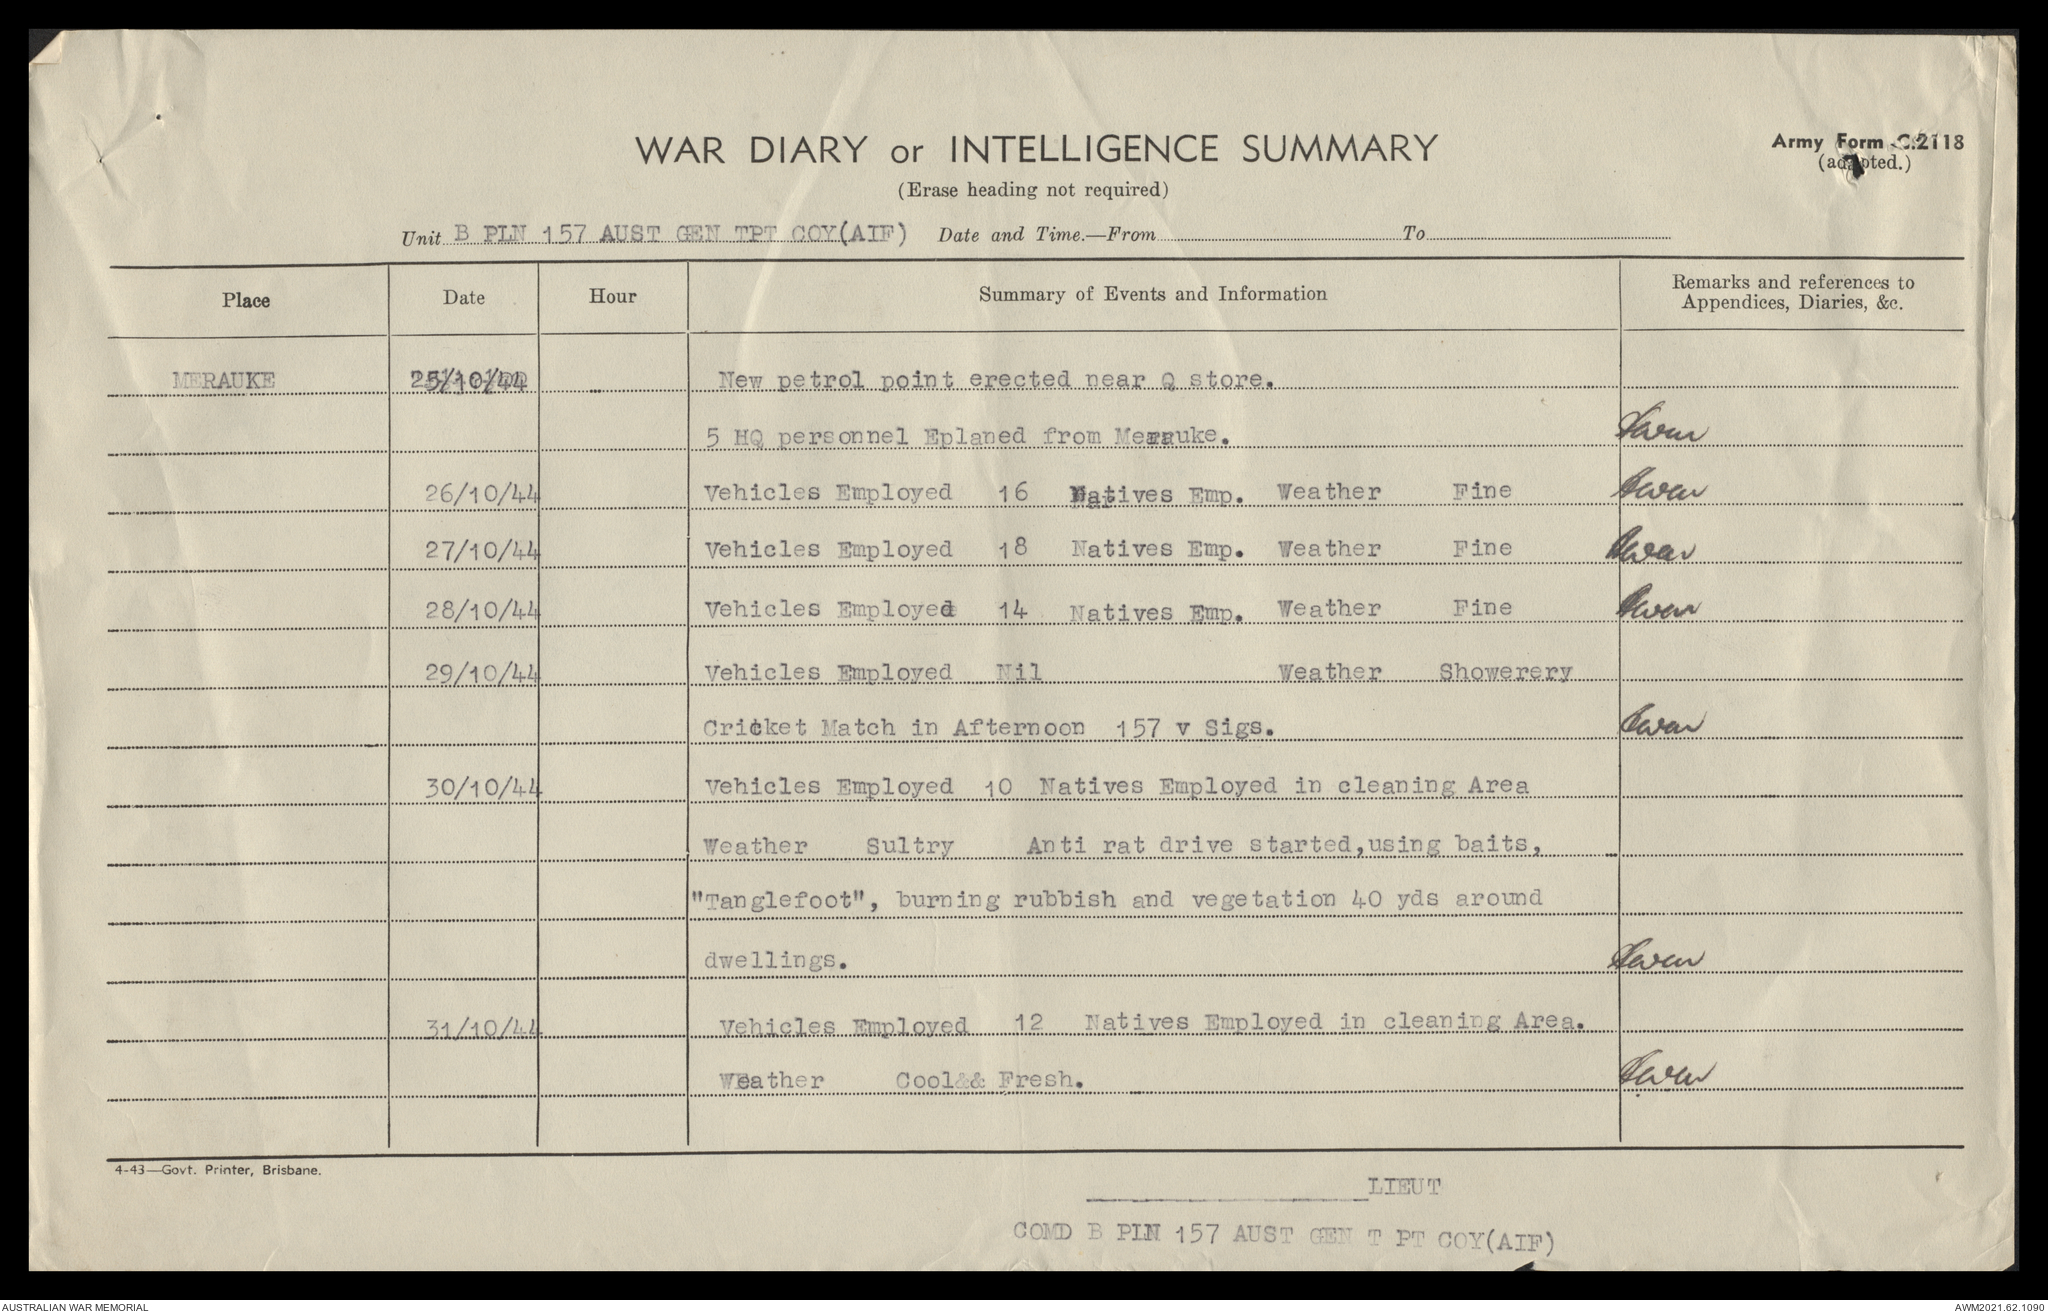 WAR DIARY or INTELLIGENCE SUMMARY
Army Form C.2118
(adapted.)
(Erase heading not required)
Unit B PLN 157 AUST GEN TPT COY(AIF) Date and Time.—From To
Place Date Hour Summary of Events and Information Remarks and references to Appendices, Diaries, &c.
MERAUKE 25/10/44 New petrol point erected near Q store.
5 HQ personnel Eplaned from Merauke.
26/10/44 Vehicles Employed 16 Natives Emp. Weather Fine
27/10/44 Vehicles Employed 18 Natives Emp. Weather Fine
28/10/44 Vehicles Employed 14 Natives Emp. Weather Fine
29/10/44 Vehicles Employed Nil Weather Showerery
Cricket Match in Afternoon 157 v Sigs.
30/10/44 Vehicles Employed 10 Natives Employed in cleaning Area
Weather Sultry Anti rat drive started,using baits,
"Tanglefoot", burning rubbish and vegetation 40 yds around
dwellings.
31/10/44 Vehicles Employed 12 Natives Employed in cleaning Area.
Weather Cool&& Fresh.
4-43—Govt. Printer, Brisbane.
LIEUT
COMD B PLN 157 AUST GEN T PT COY(AIF)
AUSTRALIAN WAR MEMORIAL
AWM2021.62.1090